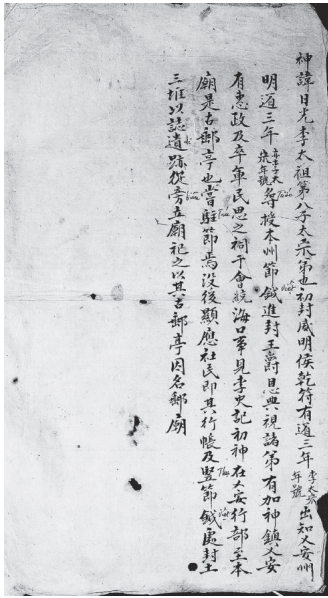 神諱日光李太祖第八子太宗弟也初封威明侯乾符有道三年李太宗年號出知乂安州
明道三年亦李太宗年號尋授本州節鉞進封王爵恩典視諸弟有加神鎮乂安
有惠政及卒軍民思之祠于會統海口事見李史記初神在乂安行部至本
廟是古郵亭也嘗駐節焉没後顯應社民即其行帳及竪節鉞處封土
三堆以誌遺跡從旁立廟祀之以其古郵亭因名郵廟